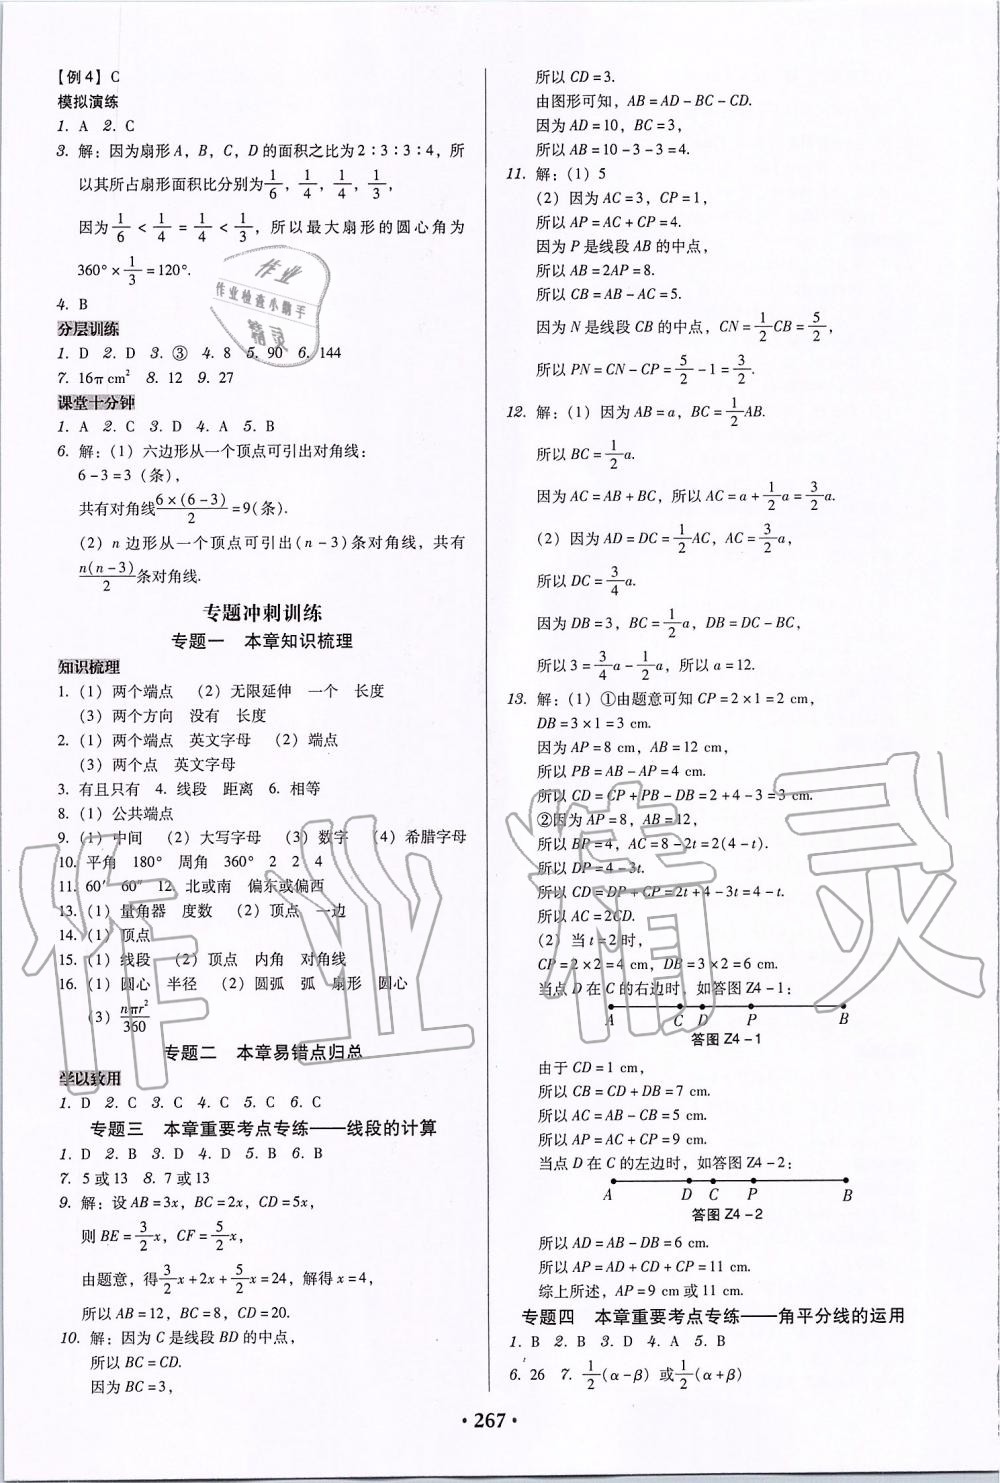 【例4】C
模拟演练
1. A 2. C
3. 解：因为扇形A，B，C，D的面积之比为2∶3∶3∶4，所
以其所占扇形面积比分别为1/6，1/4，1/4，1/3，
因为1/6＜1/4＝1/4＜1/3，所以最大扇形的圆心角为
360°×1/3＝120°.
4. B
分层训练
1. D 2. D 3. ③ 4. 8 5. 90 6. 144
7. 16π cm² 8. 12 9. 27
课堂十分钟
1. A 2. C 3. D 4. A 5. B
6. 解：(1) 六边形从一个顶点可引出对角线：
6－3＝3（条），
共有对角线6×(6－3)/2＝9(条).
(2) n边形从一个顶点可引出(n－3)条对角线，共有
n(n－3)/2条对角线.
专题冲刺训练
专题一 本章知识梳理
知识梳理
1. (1) 两个端点 (2) 无限延伸 一个 长度
(3) 两个方向 没有 长度
2. (1) 两个端点 英文字母 (2) 端点
(3) 两个点 英文字母
3. 有且只有 4. 线段 距离 6. 相等
8. (1) 公共端点
9. (1) 中间 (2) 大写字母 (3) 数字 (4) 希腊字母
10. 平角 180° 周角 360° 2 2 4
11. 60′ 60″ 12. 北或南 偏东或偏西
13. (1) 量角器 度数 (2) 顶点 一边
14. (1) 顶点
15. (1) 线段 (2) 顶点 内角 对角线
16. (1) 圆心 半径 (2) 圆弧 弧 扇形 圆心
(3) nπr²/360
专题二 本章易错点归总
学以致用
1. D 2. C 3. C 4. C 5. C 6. C
专题三 本章重要考点专练——线段的计算
1. D 2. B 3. D 4. D 5. B 6. B
7. 5或13 8. 7或13
9. 解：设AB＝3x，BC＝2x，CD＝5x，
则BE＝3/2x，CF＝5/2x，
由题意，得3/2x＋2x＋5/2x＝24，解得x＝4，
所以AB＝12，BC＝8，CD＝20.
10. 解：因为C是线段BD的中点，
所以BC＝CD.
因为BC＝3，
所以CD＝3.
由图形可知，AB＝AD－BC－CD.
因为AD＝10，BC＝3，
所以AB＝10－3－3＝4.
11. 解：(1) 5
(2) 因为AC＝3，CP＝1，
所以AP＝AC＋CP＝4.
因为P是线段AB的中点，
所以AB＝2AP＝8.
所以CB＝AB－AC＝5.
因为N是线段CB的中点，CN＝1/2CB＝5/2，
所以PN＝CN－CP＝5/2－1＝3/2.
12. 解：(1) 因为AB＝a，BC＝1/2AB.
所以BC＝1/2a.
因为AC＝AB＋BC，所以AC＝a＋1/2a＝3/2a.
(2) 因为AD＝DC＝1/2AC，AC＝3/2a，
所以DC＝3/4a.
因为DB＝3，BC＝1/2a，DB＝DC－BC，
所以3＝3/4a－1/2a，所以a＝12.
13. 解：(1) ①由题意可知CP＝2×1＝2 cm，
DB＝3×1＝3 cm.
因为AP＝8 cm，AB＝12 cm，
所以PB＝AB－AP＝4 cm.
所以CD＝CP＋PB－DB＝2＋4－3＝3 cm.
②因为AP＝8，AB＝12，
所以BP＝4，AC＝8－2t＝2(4－t).
所以DP＝4－3t.
所以CD＝DP＋CP＝2t＋4－3t＝4－t.
所以AC＝2CD.
(2) 当t＝2时，
CP＝2×2＝4 cm，DB＝3×2＝6 cm.
当点D在C的右边时，如答图Z4－1：
A C D P B
答图Z4－1
由于CD＝1 cm，
所以CB＝CD＋DB＝7 cm.
所以AC＝AB－CB＝5 cm.
所以AP＝AC＋CP＝9 cm.
当点D在C的左边时，如答图Z4－2：
A D C P B
答图Z4－2
所以AD＝AB－DB＝6 cm.
所以AP＝AD＋CD＋CP＝11 cm.
综上所述，AP＝9 cm或11 cm.
专题四 本章重要考点专练——角平分线的运用
1. B 2. B 3. D 4. A 5. B
6. 26 7. 1/2(α－β) 或1/2(α＋β)
·267·
作业
作业检查小助手
精灵
作业精灵